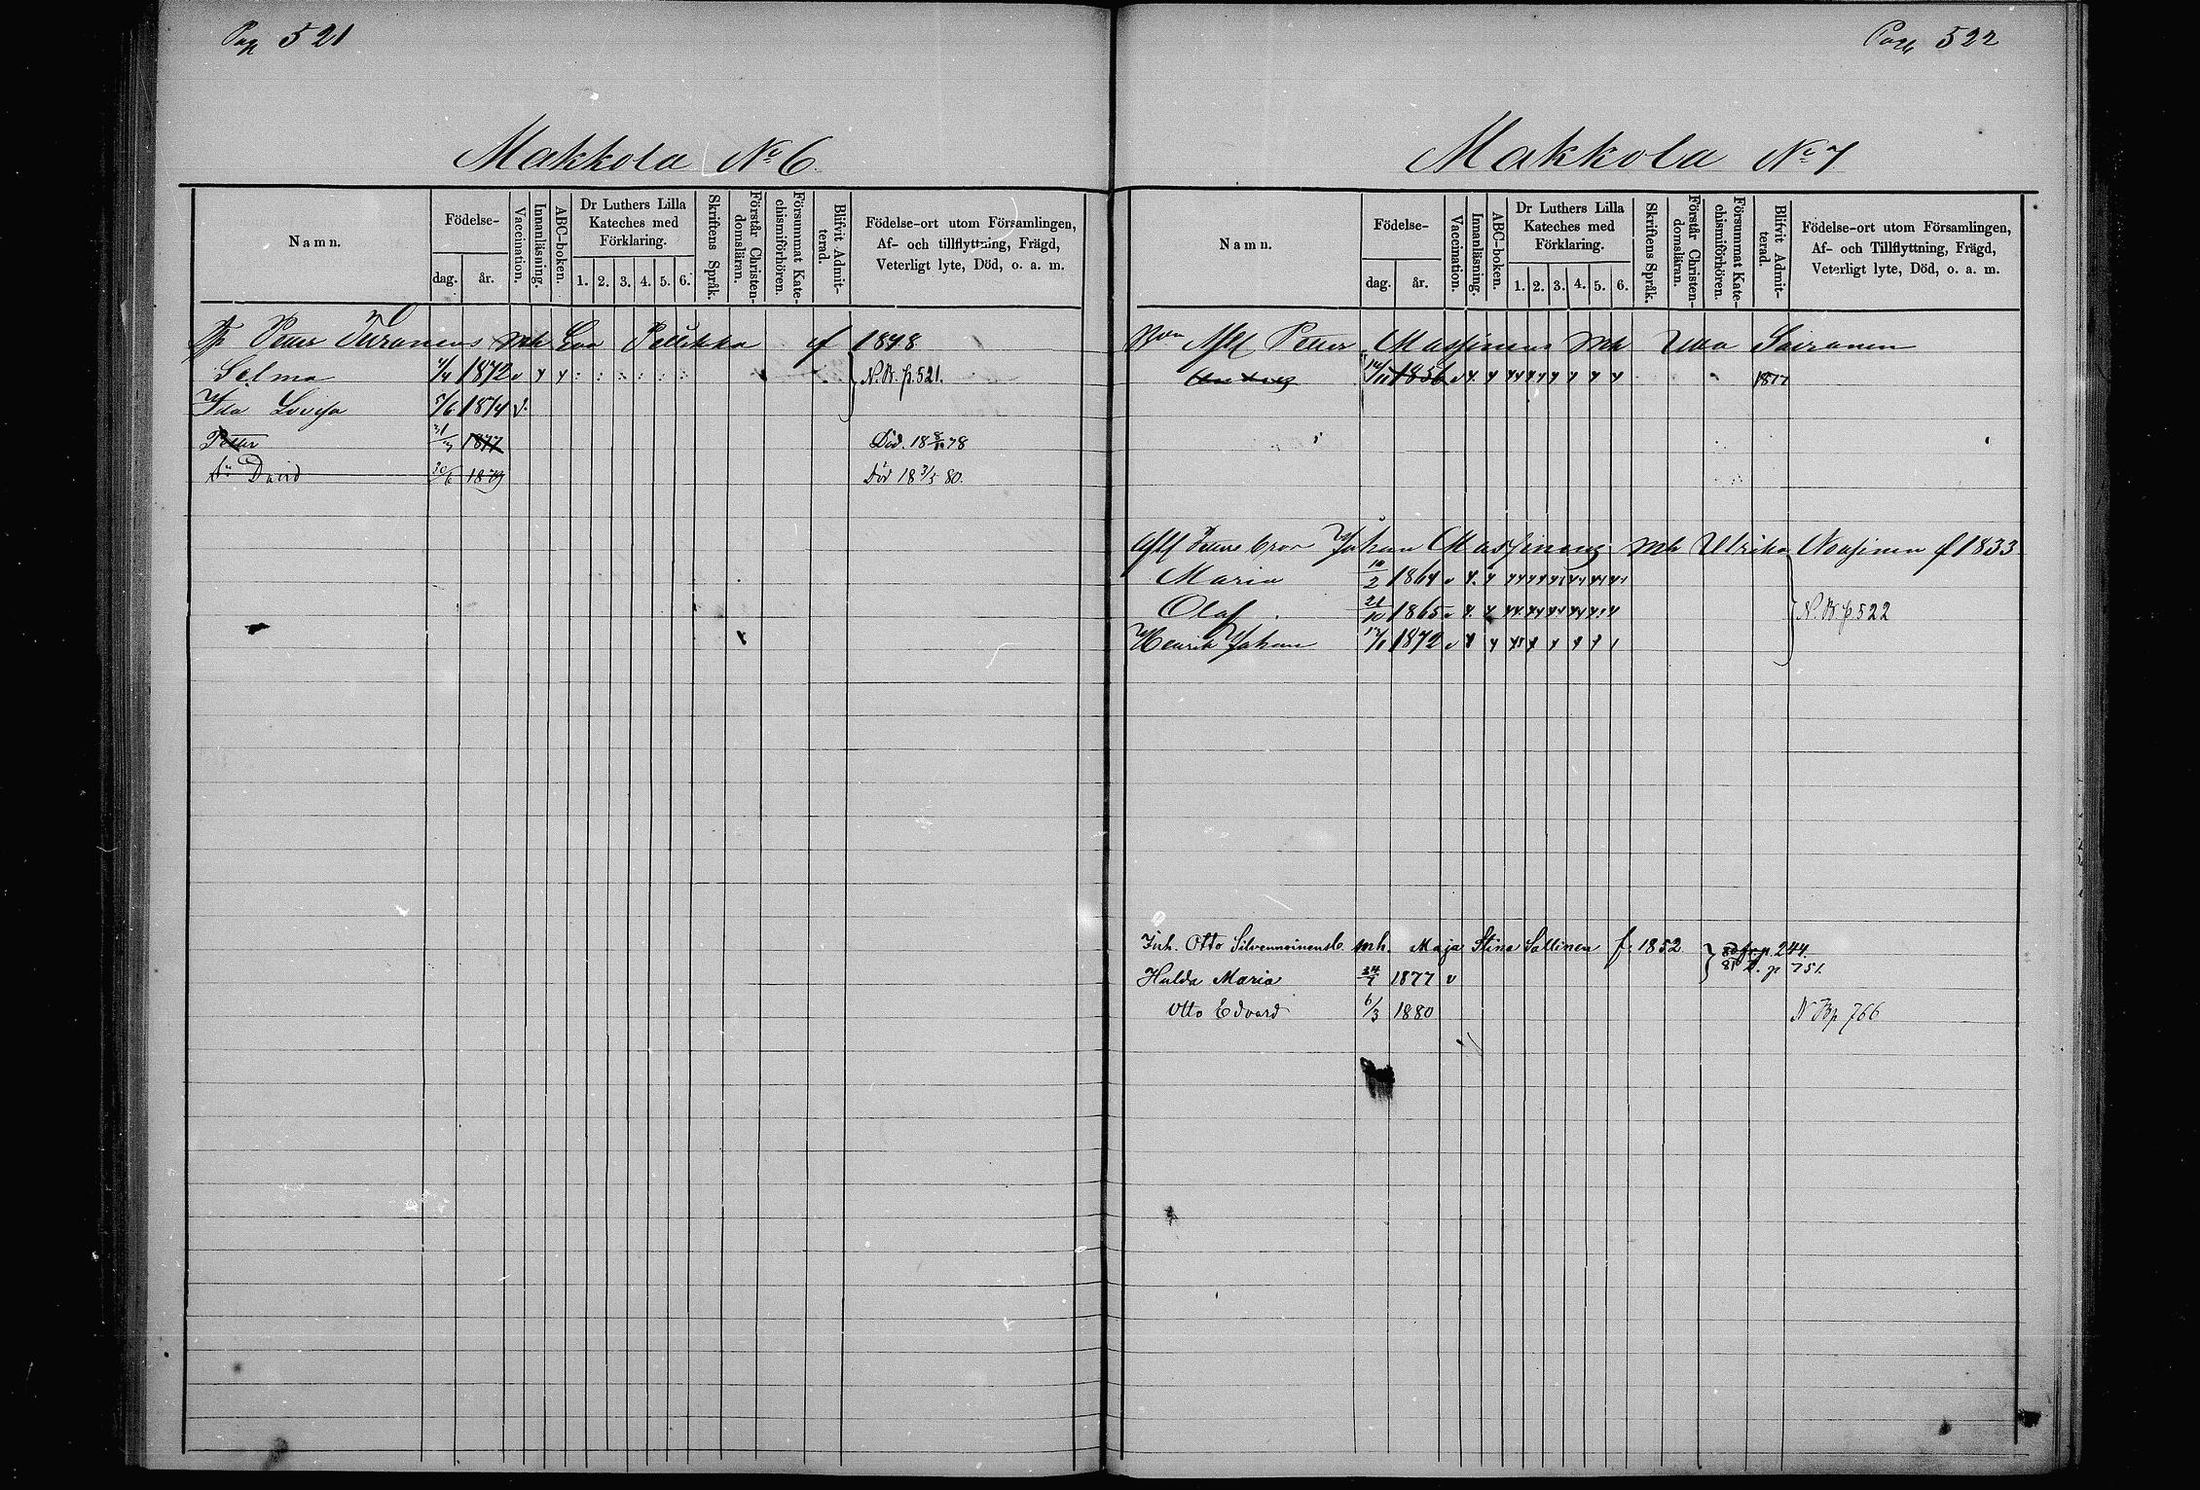 Pag 521
Makkola No 6
Namn.
Födelse-
dag.
år.
Vaccination.
Innanläsning.
ABC-boken.
Dr Luthers Lilla Kateches med Förklaring.
1. 2. 3. 4. 5. 6.
Skriftens Språk.
Förstår Christendomsläran.
Försummat Katechismiförhören.
Blifvit Admitterad.
Födelse-ort utom Församlingen, Af- och tillflyttning, Frägd, Veterligt lyte, Död, o. a. m.
Petter Turunens mh Eva Pelikka f 1848
Selma 1872 v N.B. p. 521.
Ida Lovisa 5/6 1874 v.
Petter 1877 Död. 18 78
David 20/6 1879 Död 18 3/5 80.
Page 522
Makkola No 7
Namn.
Födelse-
dag.
år.
Vaccination.
Innanläsning.
ABC-boken.
Dr Luthers Lilla Kateches med Förklaring.
1. 2. 3. 4. 5. 6.
Skriftens Språk.
Förstår Christendomsläran.
Försummat Katechismiförhören.
Blifvit Admitterad.
Födelse-ort utom Församlingen, Af- och Tillflyttning, Frägd, Veterligt lyte, Död, o. a. m.
Petter Massinens mh Ulla Sairanen
1856 1877
Petters bror Johan Massinens mh Ulrika Nousinen f 1833
Maria 10/2 1864 v
Olof 21/10 1865 v N.B. p 522
Henrik Johan 1872 v
Inh. Otto Silvennoinensk mh. Maja Stina Sallinen f. 1852 80 fr. p. 244.
81 t. p 751.
Hulda Maria 24/7 1877 v
Otto Edvard 6/3 1880 N Bp 766